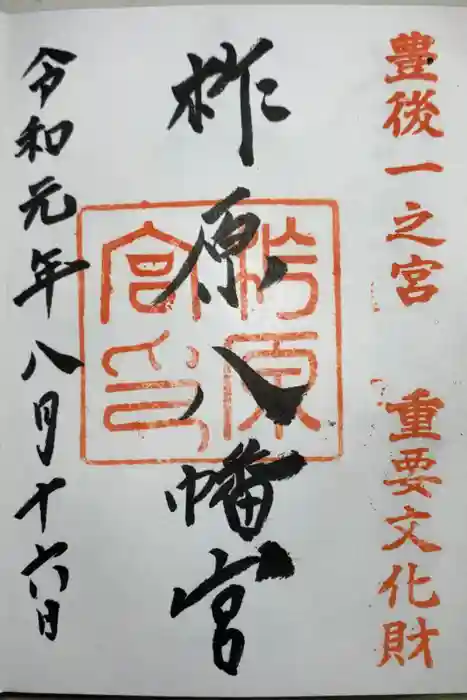 豊後一之宮 重要文化財
柞原八幡宮
柞原宮印
令和元年八月十六日